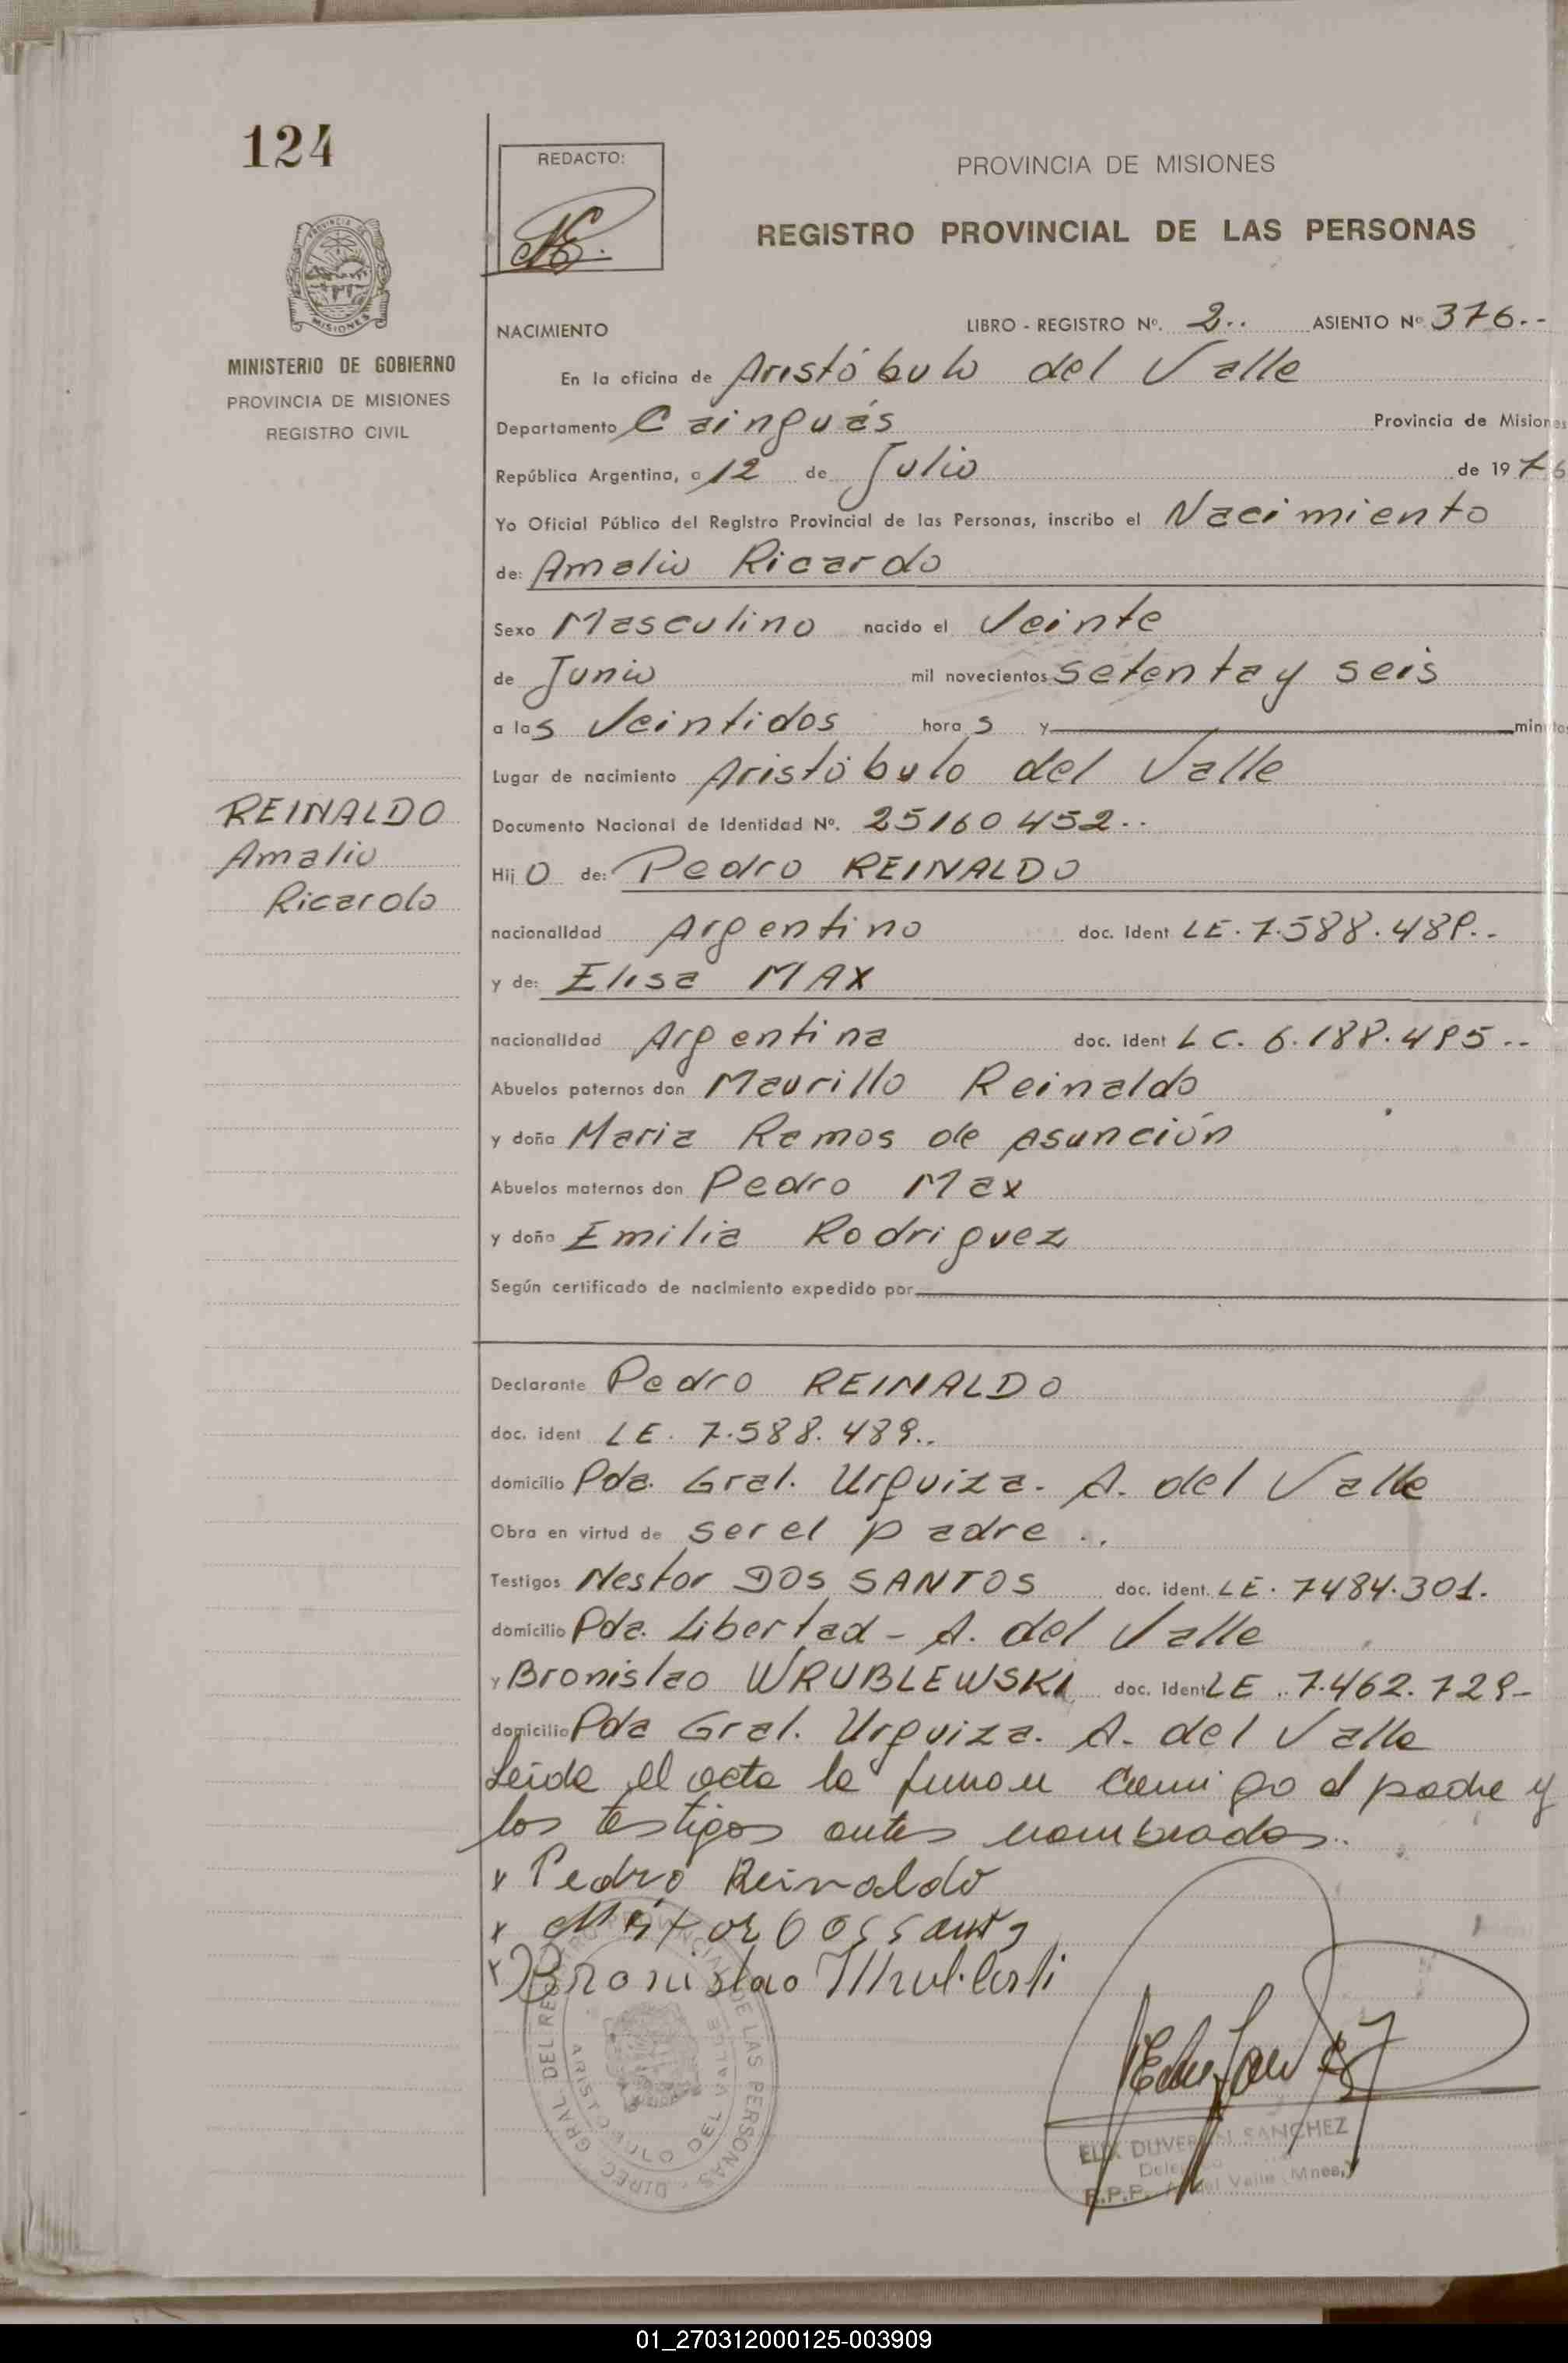 124
REDACTO:
PROVINCIA DE MISIONES
REGISTRO PROVINCIAL DE LAS PERSONAS
MINISTERIO DE GOBIERNO
PROVINCIA DE MISIONES
REGISTRO CIVIL
NACIMIENTO LIBRO - REGISTRO Nº. 2.. ASIENTO Nº 376.-
En la oficina de Aristóbulo del Valle
Departamento Cainguás Provincia de Misiones
República Argentina, a 12 de Julio de 1976
Yo Oficial Público del Registro Provincial de las Personas, inscribo el Nacimiento
de: Amalio Ricardo
Sexo Masculino nacido el Veinte
de Junio mil novecientos setenta y seis
a las Veintidos horas y minutos
Lugar de nacimiento Aristóbulo del Valle
REINALDO
Amalio
Ricardo
Documento Nacional de Identidad Nº. 25160452..
Hijo de: Pedro REINALDO
nacionalidad Argentino doc. ident LE. 7.588.489..
y de: Elisa MAX
nacionalidad Argentina doc. ident LC. 6.189.495..
Abuelos paternos don Maurillo Reinaldo
y doña Maria Ramos de Asunción
Abuelos maternos don Pedro Max
y doña Emilia Rodriguez
Según certificado de nacimiento expedido por
Declarante Pedro REINALDO
doc. ident LE. 7.588.489..
domicilio Pda. Gral. Urquiza. A. del Valle
Obra en virtud de ser el padre..
Testigos Nestor DOS SANTOS doc. ident. LE. 7484.301.
domicilio Pda. Libertad - A. del Valle
y Bronislao WRUBLEWSKI doc. ident LE. 7.462.729-
domicilio Pda Gral. Urquiza. A. del Valle
Leida el acta la firman conmigo el padre y
los testigos antes nombrados..
x Pedro Reinaldo
x
x Bronislao
DIREC. GRAL. DEL REGISTRO PROVINCIAL DE LAS PERSONAS
ARISTOBULO DEL VALLE
SANCHEZ
R.P.P. A. del Valle Mnes.
01_270312000125-003909